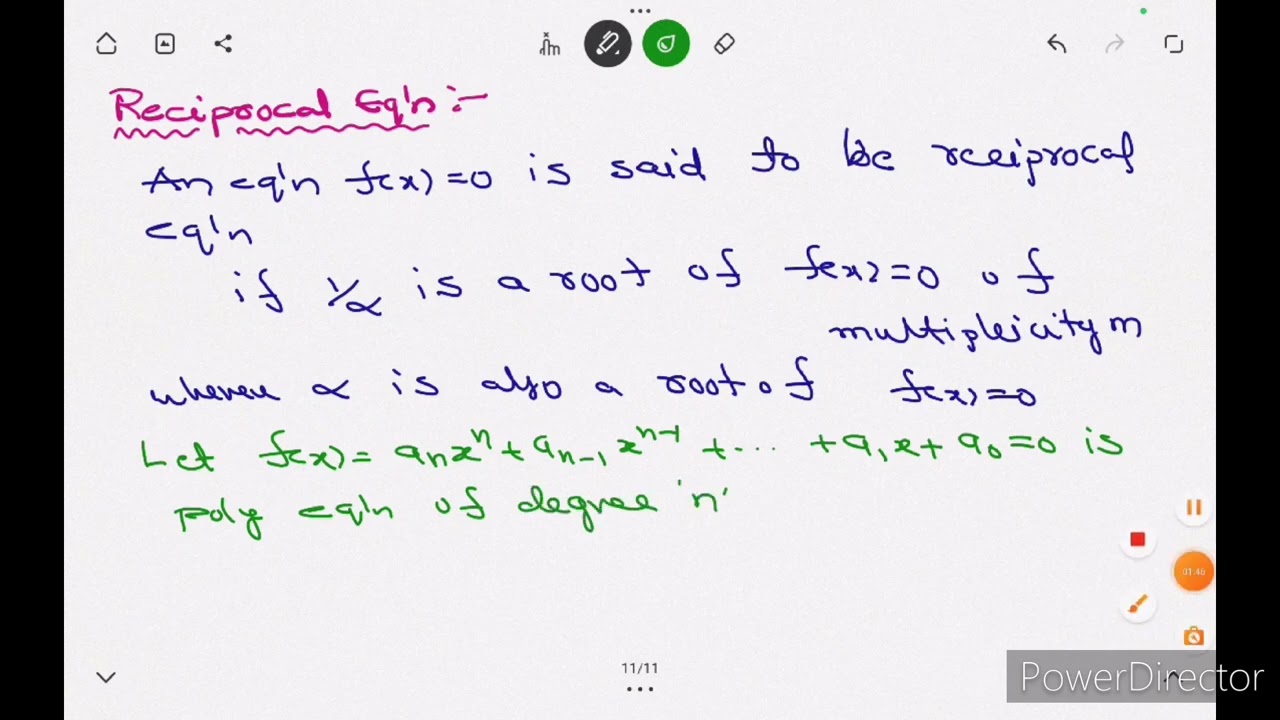 Reciprocal Eq'n :-
An eq'n f(x) = 0 is said to be reciprocal
eq'n
if 1/α is a root of f(x) = 0 of
multiplicity m
where α is also a root of f(x) = 0
Let f(x) = aₙxⁿ + aₙ₋₁xⁿ⁻¹ + ... + a₁x + a₀ = 0 is
poly eq'n of degree 'n'
01:46
11/11
PowerDirector